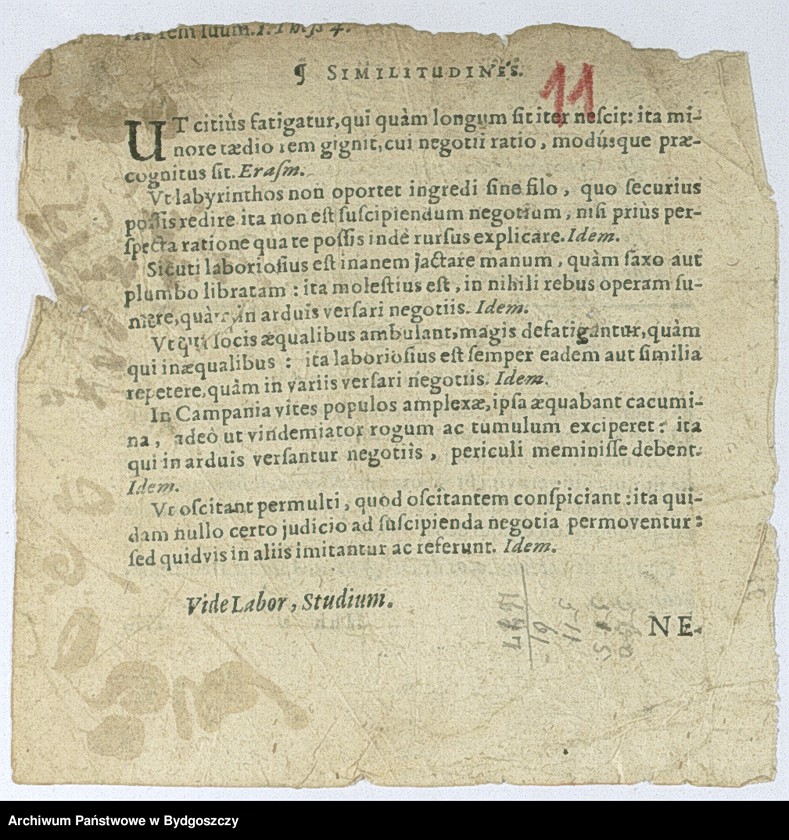 suum. 1. Thess 4.
¶ SIMILITUDINES.
11
UT citiùs fatigatur, qui quàm longum sit iter nescit: ita mi-
nore tædio rem gignit, cui negotii ratio, modúsque præ-
cognitus sit. Erasm.
Vt labyrinthos non oportet ingredi sine filo, quo securius
possis redire ita non est suscipiendum negotium, nisi priùs per-
specta ratione qua te possis inde rursus explicare. Idem.
Sicuti laboriosius est inanem jactare manum, quàm saxo aut
plumbo libratam: ita molestius est, in nihili rebus operam su-
mere, quàm in arduis versari negotiis. Idem.
Vt qui socis æqualibus ambulant, magis defatigantur, quàm
qui inæqualibus: ita laboriosius est semper eadem aut similia
repetere, quàm in variis versari negotiis. Idem.
In Campania vites populos amplexæ, ipsa æquabant cacumi-
na, adeò ut vindemiator rogum ac tumulum exciperet: ita
qui in arduis versantur negotiis, periculi meminisse debent.
Idem.
Vt oscitant permulti, quod oscitantem conspiciant: ita qui-
dam nullo certo judicio ad suscipienda negotia permoventur:
sed quidvis in aliis imitantur ac referunt. Idem.
Vide Labor, Studium.
NE-
Archiwum Państwowe w Bydgoszczy